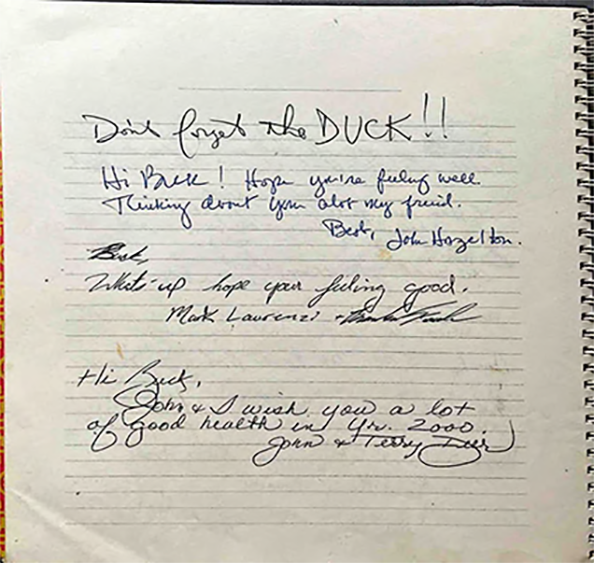 Don't forget the DUCK!!
Hi Buck! Hope you're feeling well.
Thinking about you alot my friend.
Best, John Hazelton.
Buck,
What's up hope your feeling good.
Mark Laurenzi +
Hi Buck,
John & I wish you a lot
of good health in Yr. 2000.
John & Terry